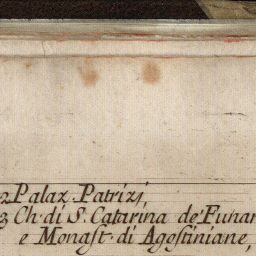 2 Palaz. Patrizi,
3 Ch. di S. Catarina de Funar
e Monast. di Agostiniane,